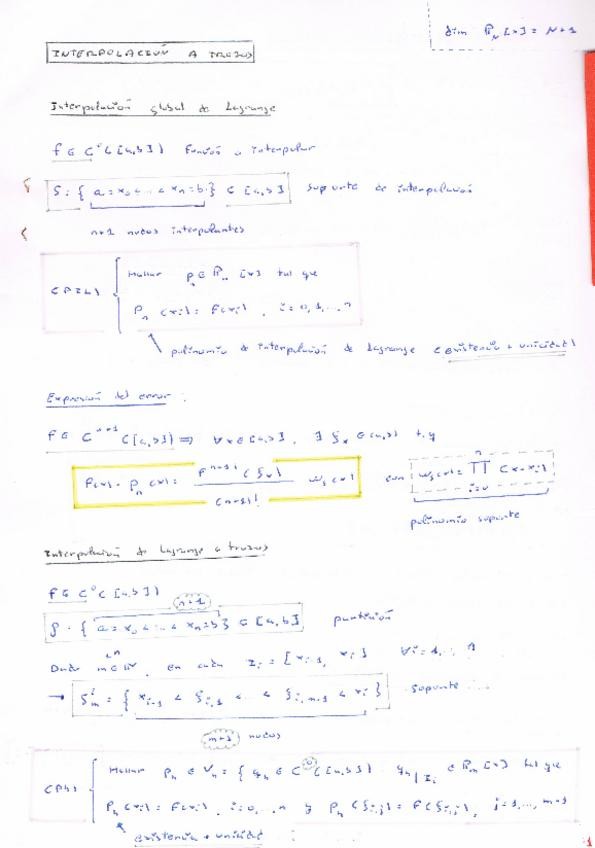 dim ℙ_N [x] = N+1
INTERPOLACIÓN A TROZOS
Interpolación global de Lagrange
f ∈ C⁰([a,b]) función a interpolar
S: { a = x₀ < ... < xₙ = b } ⊂ [a,b] soporte de interpolación
n+1 nudos interpolantes
(PIL) { Hallar pₙ ∈ ℙₙ [x] tal que
pₙ(xᵢ) = f(xᵢ), i = 0, 1, ... n
polinomio de interpolación de Lagrange (existencia + unicidad)
Expresión del error:
f ∈ Cⁿ⁺¹([a,b]) ⇒ ∀x ∈ [a,b], ∃ ξₓ ∈ (a,b) t.q
f(x) - pₙ(x) = fⁿ⁺¹(ξₓ) / (n+1)! ωₛ(x) con ωₛ(x) = ∏ᵢ₌₀ⁿ (x - xᵢ)
polinomio soporte
Interpolación de Lagrange a trozos
f ∈ C⁰([a,b])
n+1
S: { a = x₀ < ... < xₙ = b } ⊂ [a,b] partición
Dado m ∈ ℕ, en cada Iᵢ = [xᵢ₋₁, xᵢ] ∀i = 1, ..
→ Sᵢₘ = { xᵢ₋₁ < ξᵢ,₁ < ... < ξᵢ,ₘ₋₁ < xᵢ } soporte
m+1 nudos
(Ph) { Hallar pₕ ∈ Vₕ = { qₕ ∈ C⁰([a,b]) qₕ|Iᵢ ∈ ℙₘ[x] tal que
pₕ(xᵢ) = f(xᵢ), i = 0, .. n y pₕ(ξᵢ,ⱼ) = f(ξᵢ,ⱼ), j = 1, ...,
existencia + unicidad
1